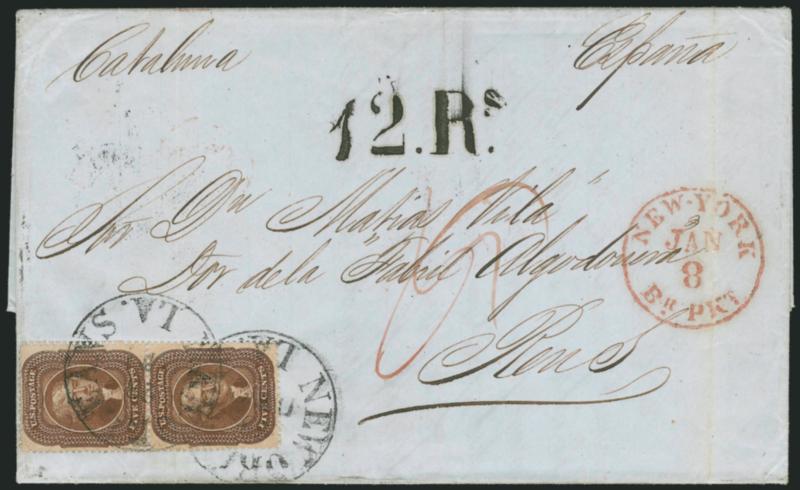 Cataluna España
12.Rs.
Sor Dn Matias Vila
Dor de la "Fabril Algodonera"
Reus
NEW-YORK
JAN
8
Br. PKT
6
U.S. POSTAGE
FIVE CENTS
U.S. POSTAGE
FIVE CENTS
LA.
NEW
LA.